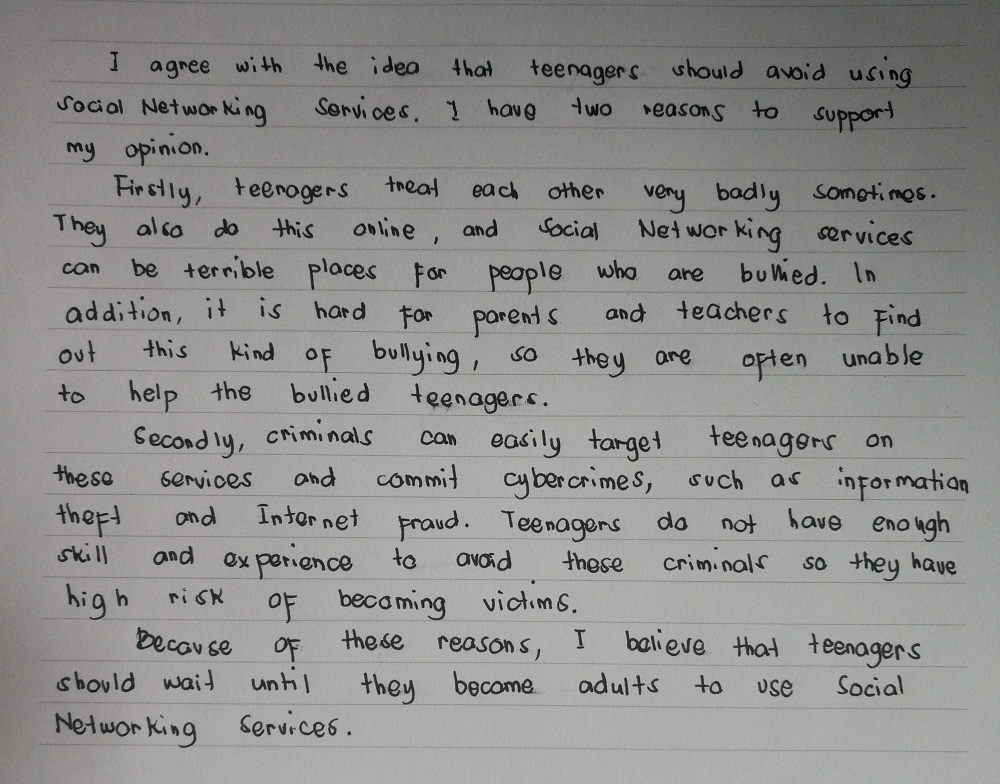 I agree with the idea that teenagers should avoid using
Social Networking Services. I have two reasons to support
my opinion.
Firstly, teenagers treat each other very badly sometimes.
They also do this online, and Social Networking services
can be terrible places for people who are bullied. In
addition, it is hard for parents and teachers to find
out this kind of bullying, so they are often unable
to help the bullied teenagers.
Secondly, criminals can easily target teenagers on
these services and commit cybercrimes, such as information
theft and Internet fraud. Teenagers do not have enough
skill and experience to avoid these criminals so they have
high risk of becoming victims.
Because of these reasons, I believe that teenagers
should wait until they become adults to use Social
Networking Services.